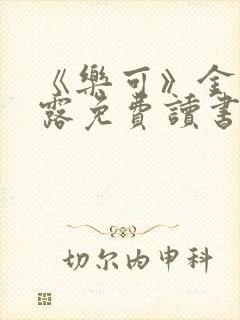 《樂可》金
露免費讀書
切尔内申科